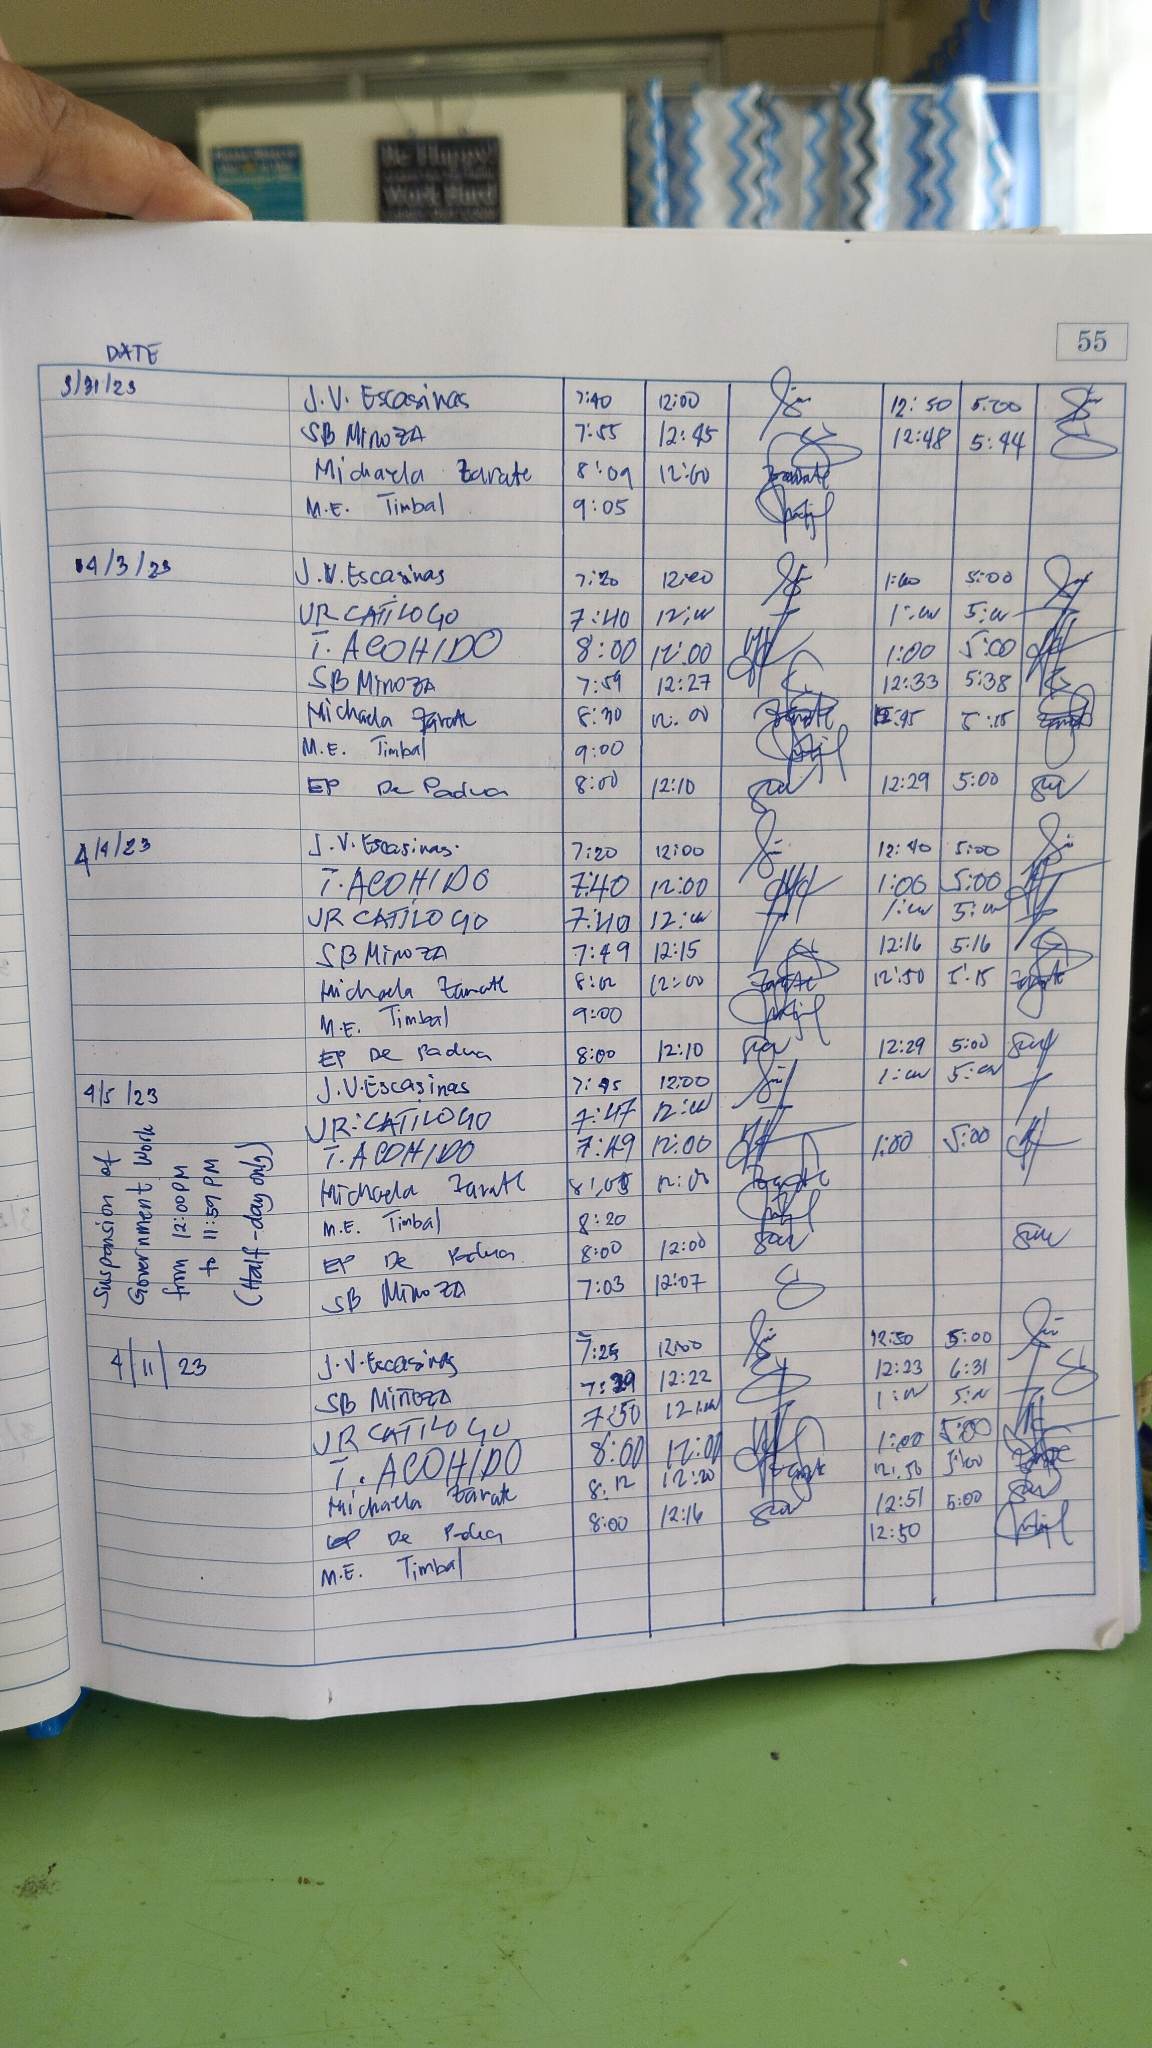 Be Happy!
Work Hard
55
DATE
3/31/23 J.V. Escasinas 7:40 12:00 12:50 5:00
SB MINOZA 7:55 12:45 12:48 5:44
Michaela Zarate 8:09 12:00 Zarate
M.E. Timbal 9:05
4/3/23 J.V. Escasinas 7:20 12:00 1:00 5:00
UR CATILOGO 7:40 12:00 1:00 5:00
T. ACOHIDO 8:00 12:00 1:00 5:00
SB MINOZA 7:59 12:27 12:33 5:38
Michaela Zarate 8:30 12:00 Zarate 5:15
M.E. Timbal 9:00
EP De Padua 8:00 12:10 12:29 5:00
4/4/23 J.V. Escasinas. 7:20 12:00 12:40 5:00
T. ACOHIDO 7:40 12:00 1:00 5:00
UR CATILOGO 7:40 12:00 1:00 5:00
SB MINOZA 7:49 12:15 12:16 5:16
Michaela Zarate 8:02 12:00 Zarate 12:50 5:15 Zarate
M.E. Timbal 9:00
EP De Padua 8:00 12:10 12:29 5:00
4/5/23 J.V. Escasinas 7:45 12:00 1:00 5:00
UR. CATILOGO 7:47 12:00
T. ACOHIDO 7:49 12:00 1:00 5:00
Michaela Zarate 12:00 Zarate
M.E. Timbal 8:20
EP De Padua 8:00 12:00
SB MINOZA 7:03 12:07
Suspension of
Government Work
from 12:00 PM
to 11:59 PM
(Half-day only)
4/11/23 J.V. Escasinas 7:25 12:00 12:30 5:00
SB MIÑOZA 12:22 12:23 6:31
UR CATILOGO 7:50 12:00 1:00 5:00
T. ACOHIDO 8:00 12:00 1:00 5:00
Michaela Zarate 8:12 12:20 Zarate 12:50 5:00 Zarate
EP De Padua 8:00 12:16 12:51 5:00
M.E. Timbal 12:50